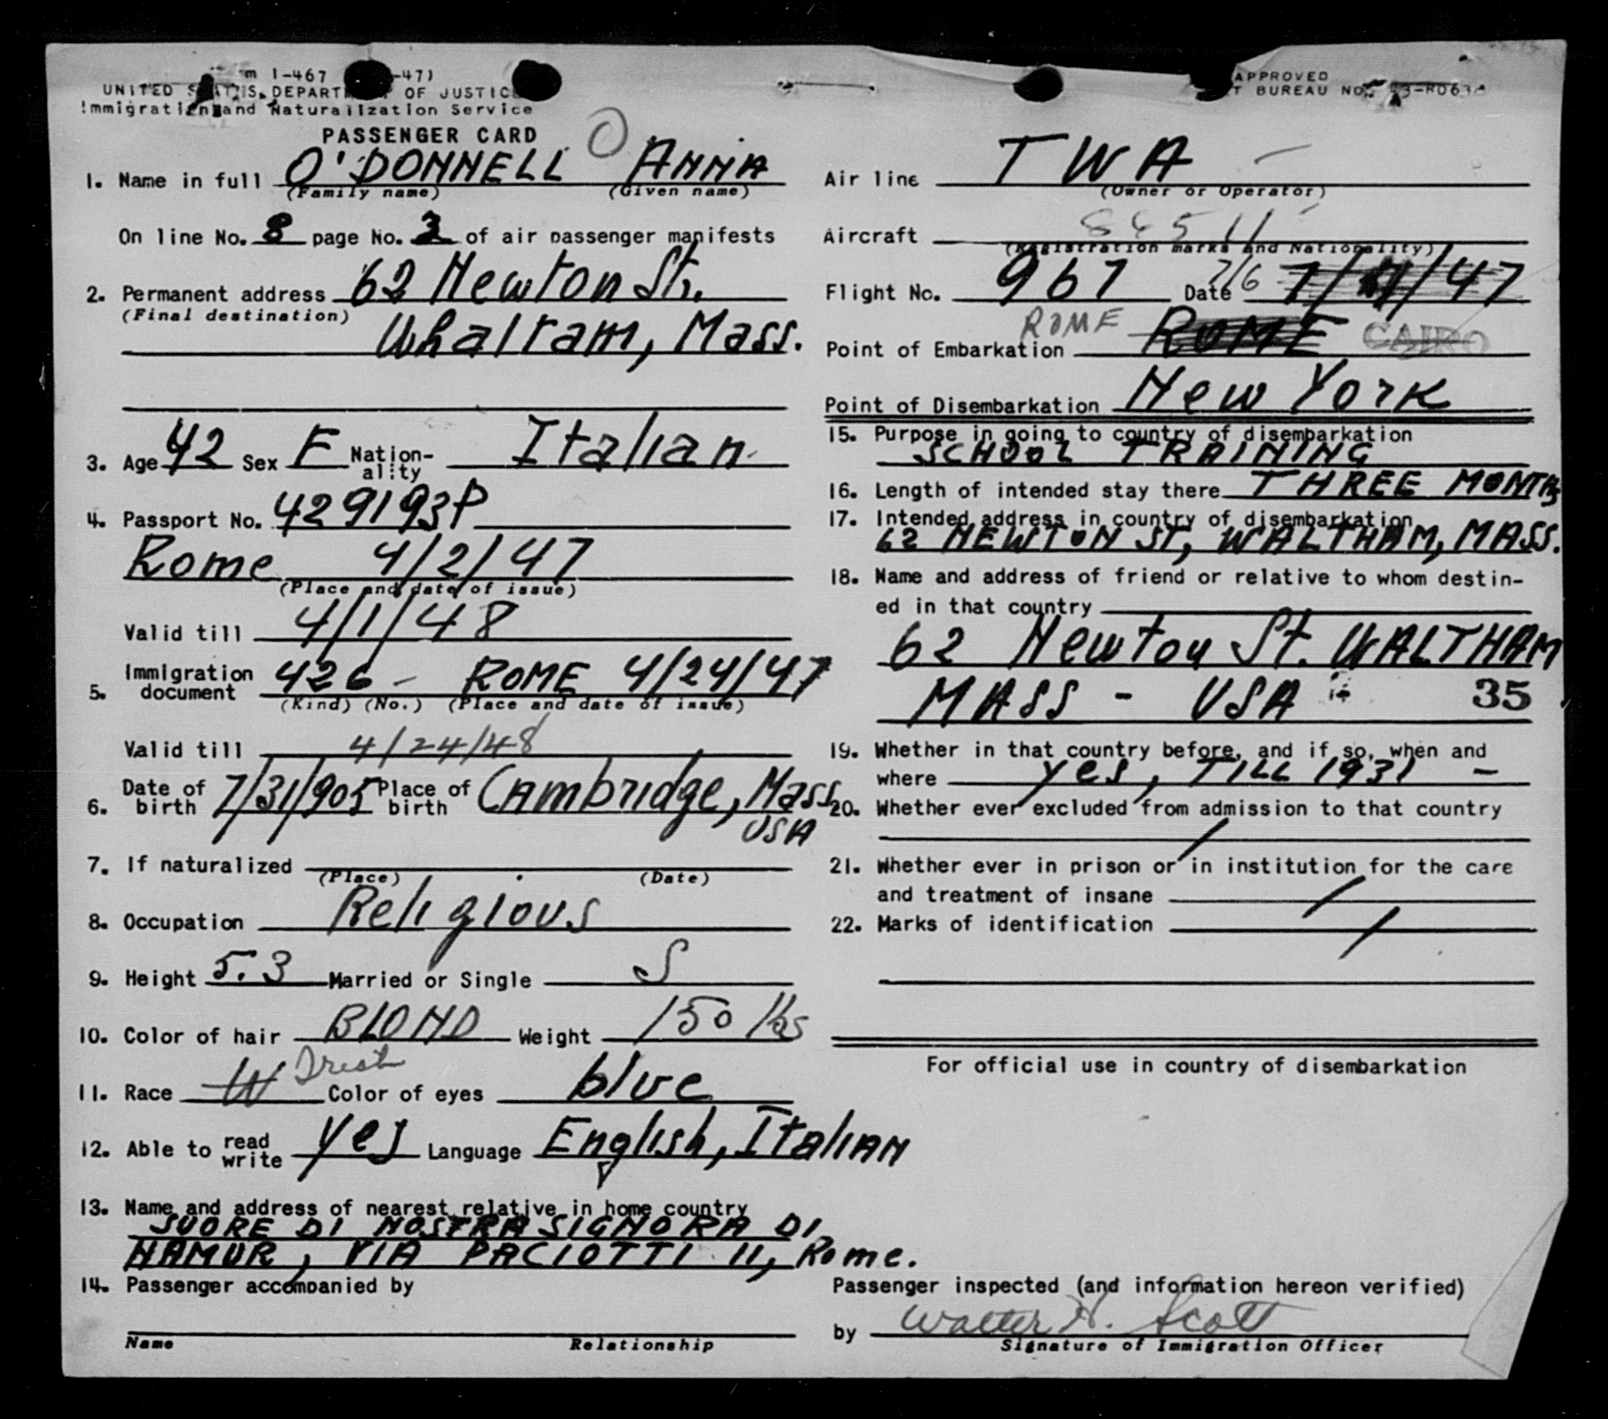 m 1-467 -47)
UNITED STATES DEPARTMENT OF JUSTICE
Immigration and Naturalization Service
APPROVED
T BUREAU NO.
PASSENGER CARD
1. Name in full O'DONNELL ANNA
(Family name) (Given name)
On line No. 8 page No. 3 of air passenger manifests
2. Permanent address 62 Newton St.
(Final destination)
Whaltam, Mass.
3. Age 42 Sex F Nation-ality Italian
4. Passport No. 429193P
Rome 4/2/47
(Place and date of issue)
Valid till 4/1/48
5. Immigration document 426 - ROME 4/24/47
(Kind) (No.) (Place and date of issue)
Valid till 4/24/48
6. Date of birth 7/31/905 Place of birth Cambridge, Mass
USA
7. If naturalized
(Place) (Date)
8. Occupation Religious
9. Height 5.3 Married or Single S
10. Color of hair BLOND Weight 150 lbs
11. Race W Irish Color of eyes blue
12. Able to read write yes Language English, Italian
13. Name and address of nearest relative in home country
SUORE DI NOSTRA SIGNORA DI
NAMUR, VIA PACIOTTI 11, Rome.
14. Passenger accompanied by
Name Relationship
Air line TWA
(Owner or Operator)
Aircraft 86511
(Registration marks and Nationality)
Flight No. 967 Date 7/6 7/11/47
ROME
Point of Embarkation ROME CAIRO
Point of Disembarkation New York
15. Purpose in going to country of disembarkation
SCHOOL TRAINING
16. Length of intended stay there THREE MONTHS
17. Intended address in country of disembarkation
62 NEWTON ST, WALTHAM, MASS.
18. Name and address of friend or relative to whom destin-
ed in that country
62 Newton St. WALTHAM
MASS - USA 35
19. Whether in that country before, and if so, when and
where yes, TILL 1931 -
20. Whether ever excluded from admission to that country
/
21. Whether ever in prison or in institution for the care
and treatment of insane /
22. Marks of identification /
For official use in country of disembarkation
Passenger inspected (and information hereon verified)
by Walter H. Scott
Signature of Immigration Officer